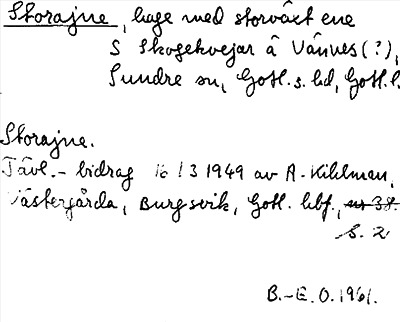 Storajne, hage med storväxt ene
S Skogekvejar å Vännes (?),
Sundre sn, Gotl. s. hd, Gotl. l.
Storajne.
Tävl.- bidrag 16/3 1949 av A. Kihlman,
Västergårda, Burgsvik, Gotl. hbf., nr 38.
s. 2
B.-E. O. 1961.